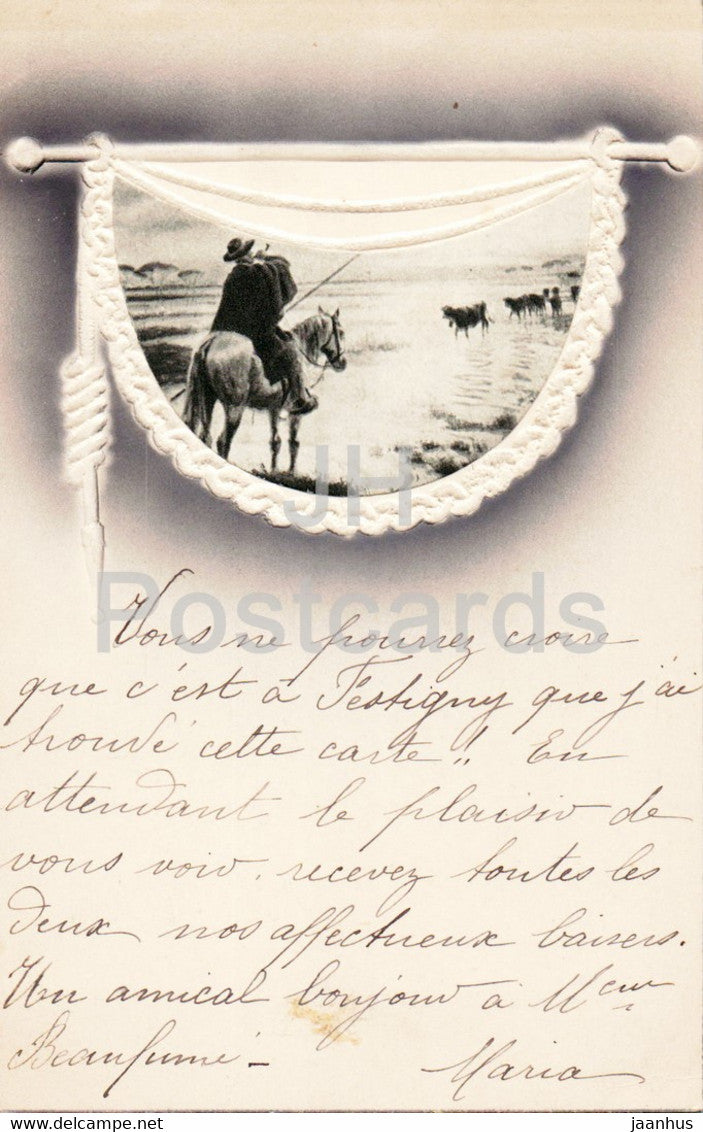 JH
Postcards
Vous ne pourrez croire
que c'est à Festigny que j'ai
trouvé cette carte!! En
attendant le plaisir de
vous voir. recevez toutes les
deux nos affectueux baisers.
Un amical bonjour à
Beaufumé -
Maria
hippostcard.com
jaanhus